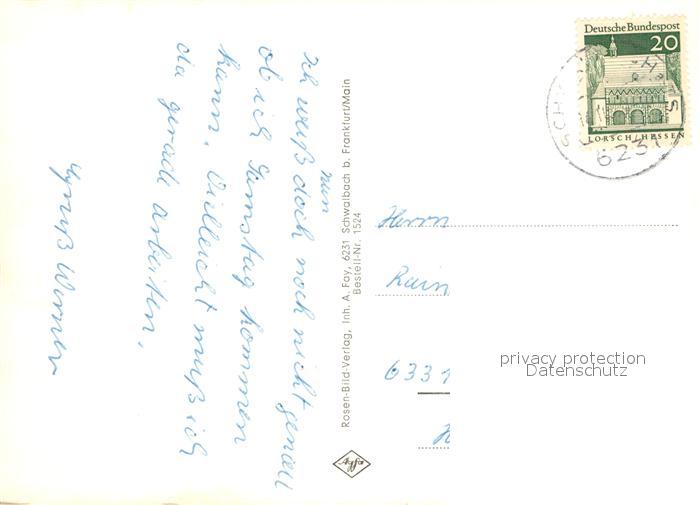 Ich weiß doch noch nicht genau
nun
ob ich Samstag kommen
kann. Vielleicht muß ich
da gerade arbeiten.
Gruß Werner
Rosen-Bild-Verlag, Inh. A. Fay, 6231 Schwalbach b. Frankfurt/Main
Bestell-Nr. 1524
Agfa
Deutsche Bundespost
20
LORSCH/HESSEN
SCH
6231
Herrn
Rain
6331
H
privacy protection
Datenschutz